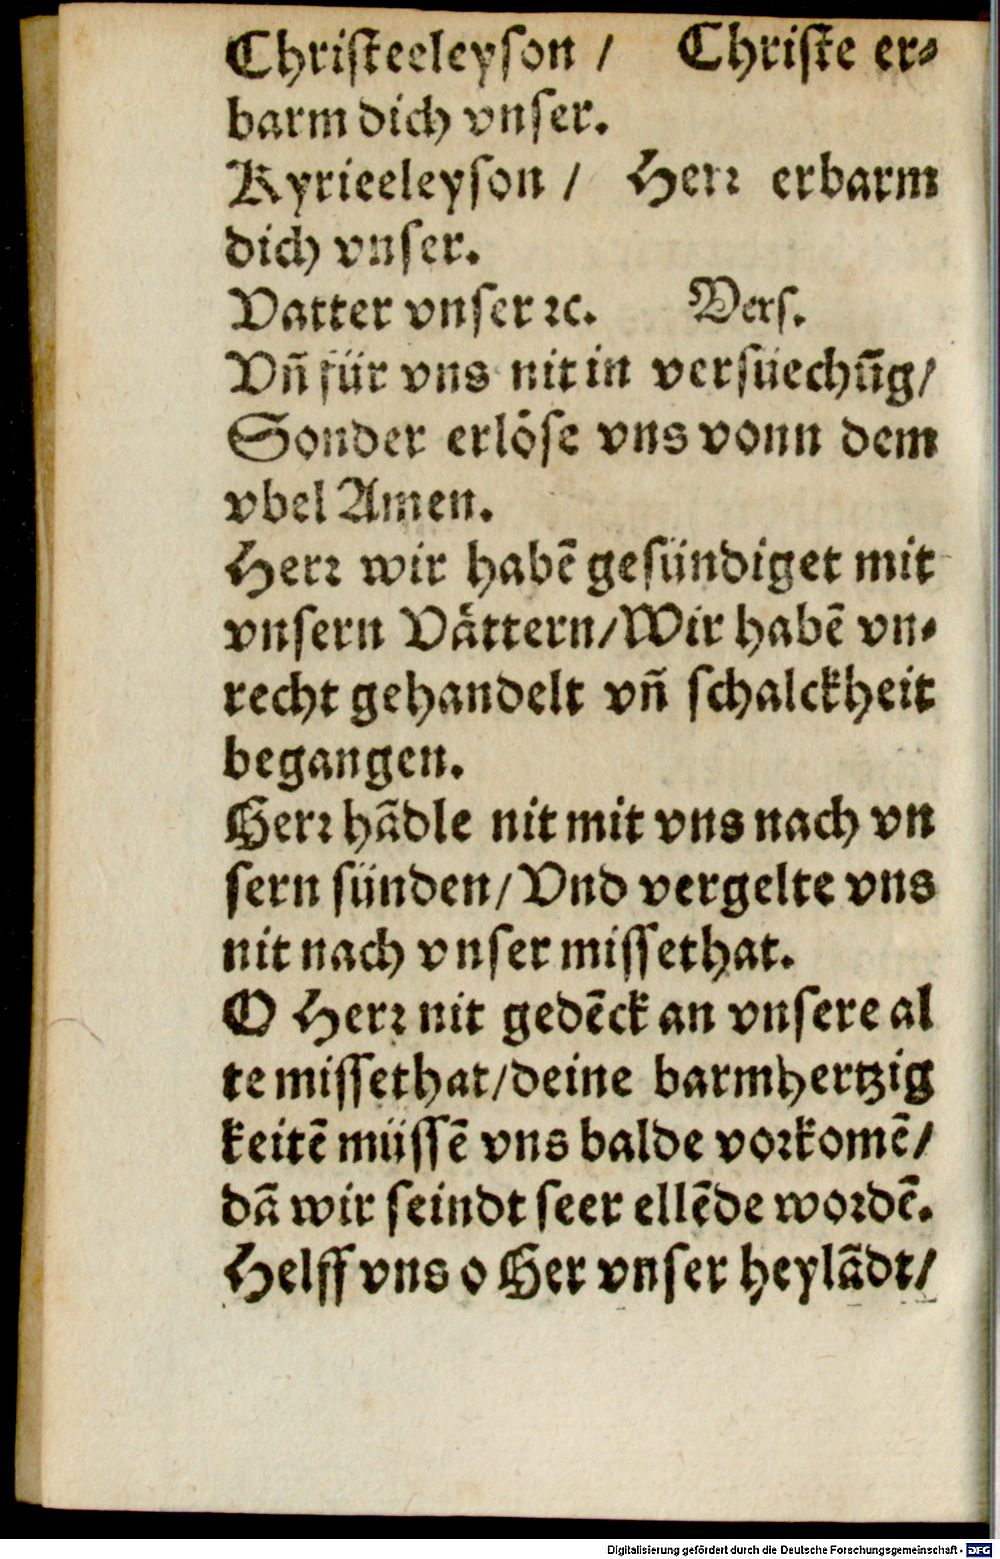 Chriſteeleyſon / Chriſte er⸗
barm dich vnſer.
Kyrieeleyſon / Herꝛ erbarm
dich vnſer.
Vatter vnſer ꝛc. Vers.
Vñ für vns nit in verſuͤechũg/
Sonder erloͤſe vns vonn dem
vbel Amen.
Herꝛ wir habẽ geſündiget mit
vnſern Vaͤttern/Wir habẽ vn⸗
recht gehandelt vñ ſchalckheit
begangen.
Herꝛ hãdle nit mit vns nach vn
ſern ſünden/Vnd vergelte vns
nit nach vnſer miſſethat.
O Herꝛ nit gedẽck an vnſere al
te miſſethat/deine barmhertzig
keitẽ müſſẽ vns balde voꝛkomẽ/
dã wir ſeindt ſeer ellẽde woꝛdẽ.
Helff vns o Her vnſer heylãdt/
Digitalisierung gefördert durch die Deutsche Forschungsgemeinschaft - DFG